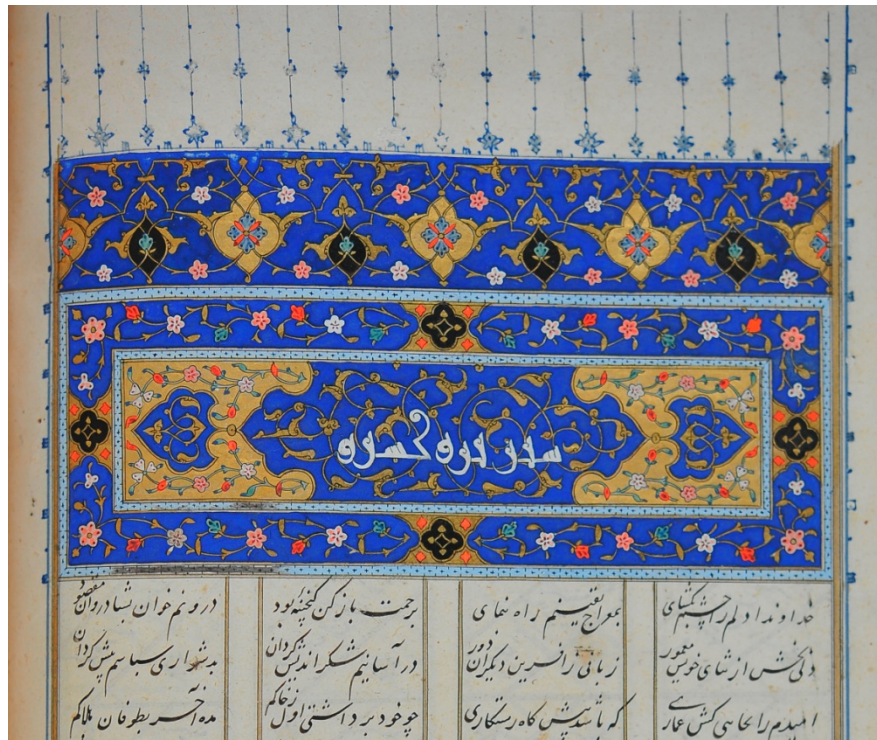 شیرین و خسرو
خداوندا دلم را چشم بگشای بمعراج یقینم راه بنمای برحمت باز کن گنجینهٔ جود درونم خوان بشادروان مقصود
دلی بخش از ثنای خویش معمور زبانی زافرین دیگران دور در آسانیم شکر اندیش گردان بدشواری سپاسم بیش گردان
امیدم را بجایی کش عماری که باشد پیش کاه رستکاری چو خود برداشتی اول ز خاکم مده آخر بطوفان هلاکم